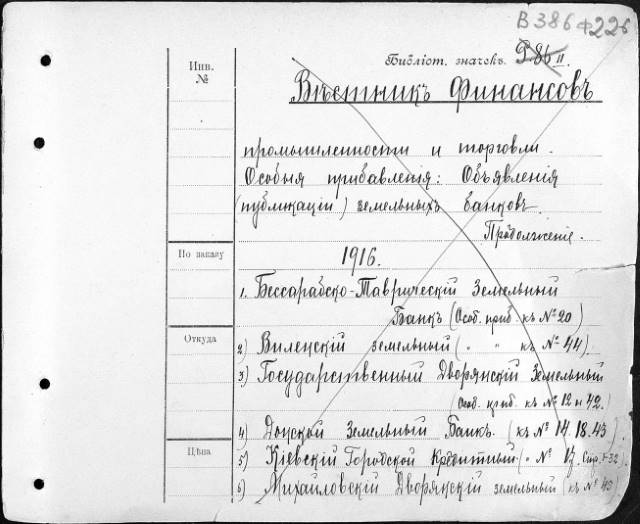 В 386 ф 226
Инв.
№
Библіот. значекъ. Р 86 II.
Вѣстникъ Финансовъ
промышленности и торговли.
Особыя прибавленія: Объявленія
(публикаціи) земельныхъ банковъ.
Продолженіе.
По заказу
1916.
1. Бессарабско-Таврическій Земельный
Банкъ (Особ. приб. къ № 20)
Откуда
2) Виленскій земельный (" " къ № 44).
3) Государственный Дворянскій Земельный
(Особ. приб. къ № 12 и 42.)
4) Донской Земельный Банкъ. (къ № 14. 18. 43.)
Цѣна
5) Кіевскій Городской Кредитный (" № 17. Стр. 1-32)
6) Михайловскій Дворянскій земельный (къ № 40)